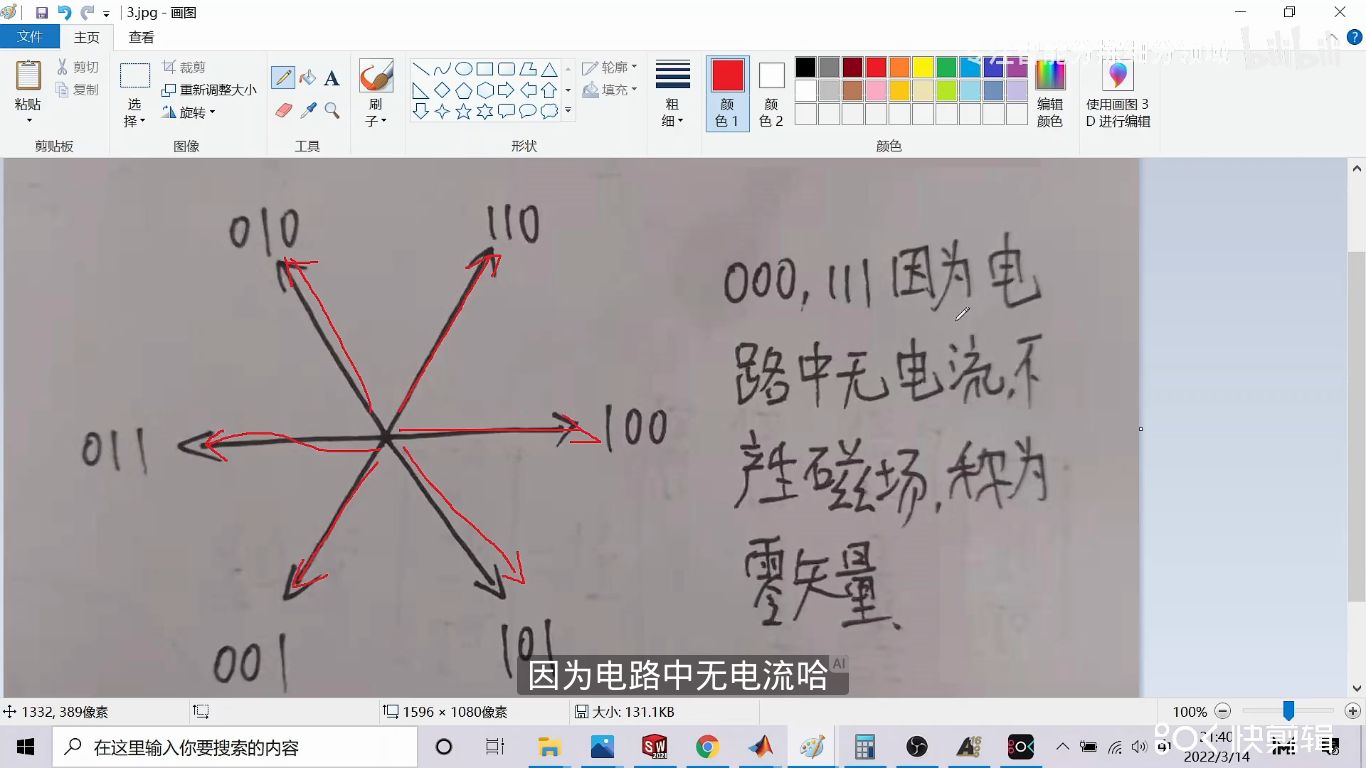 3.jpg - 画图
文件 主页 查看
粘贴
剪切
复制
剪贴板
选择
裁剪
重新调整大小
旋转
图像
A
工具
刷子
轮廓
填充
形状
粗细
颜色 1
颜色 2
编辑颜色
使用画图 3D 进行编辑
颜色
bilibili
010
110
011
100
001
101
000, 111 因为电
路中无电流,不
产生磁场,称为
零矢量、
因为电路中无电流哈
AI
1332, 389像素
1596 × 1080像素
大小: 131.1KB
100%
在这里输入你要搜索的内容
SW
2022/3/14
快剪辑